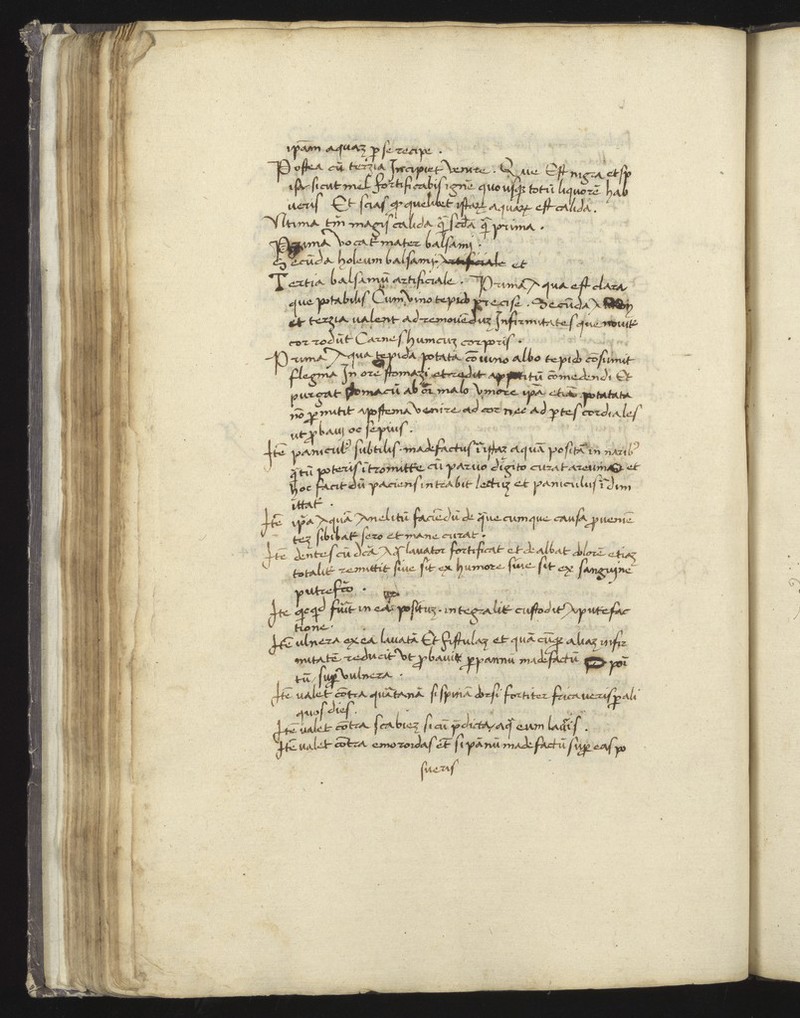 ipam aquaz p se recipe .
Postea cũ terzia Incipiet Venire . Que Est nigra et sp
isa sicut mel fortificabis igne quousqz totũ liquorẽ hab
ueris Et scias qp quelibet istaꝝ aquaꝝ est calida .
Vltima tm̃ magis calida q̃ scda q̃ prima .
Prima Vocat mater balsami .
Secũda holeum balsami artificiale et
Tertia balsamũ artificiale . Prima Aqua est clara
que potabilis Cum vino tepido precise . Secũda
et terzia ualent ad remouẽduz Infirmitates que
corrodũt Carnes humcuz corporis .
Prima Aqua tepida potata cõ uino albo tepido cõsumit
flegma In ore stomazi et reddit appetitũ cõmedendi Et
purgat stomacũ ab oĩ malo Vmore ipã etiã potatata
nõ pmittit apostema venire ad cor nec ad ptes cordiales
ut pbaui oc sepius .
Itẽ panicul' subtilis madefactus ĩ istaz aquã positã in narib'
q̃tũ poteris ĩtromittere cũ paruo digito curat a reumas et
hoc facit dũ paciens intrabit lectuz et paniculus ĩ dim
ittat .
Itẽ ipã Aquã Anelitũ faciẽdũ de quecumque causa pueniẽ
tez si bibat sero et mane curat .
Itẽ dentes cũ dc̃a Aq̃ lauator fortificat et dealbat dolorẽ etiaz
totalit remittit siue sit ex humore siue sit ex sanguine
putrefc̃o .
Ite q̃cqd fuit in ea positus integralit custodit A putefac
tione .
Itẽ ulnera ex ea lauatã Et fistulaz et quã cũqz aliaz infir
mitatẽ reducit Vt pbauit p pannu madefactũ poĩ
tũ sup vulnera .
Itẽ ualet cõtra quãtanã si spinã dorsi fortiter fricaueris p ali
quos dies .
Itẽ ualet cõtra scabiez si cũ pdicta aq̃ eum laq̃is .
Itẽ ualet cõtra emoroidas et̃ si pãnũ madefactũ sup eas po
sueris